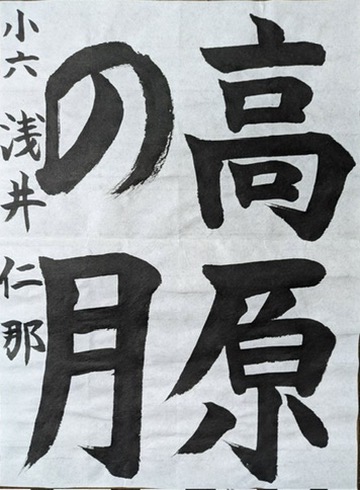 高原
の月
小六 浅井 仁那